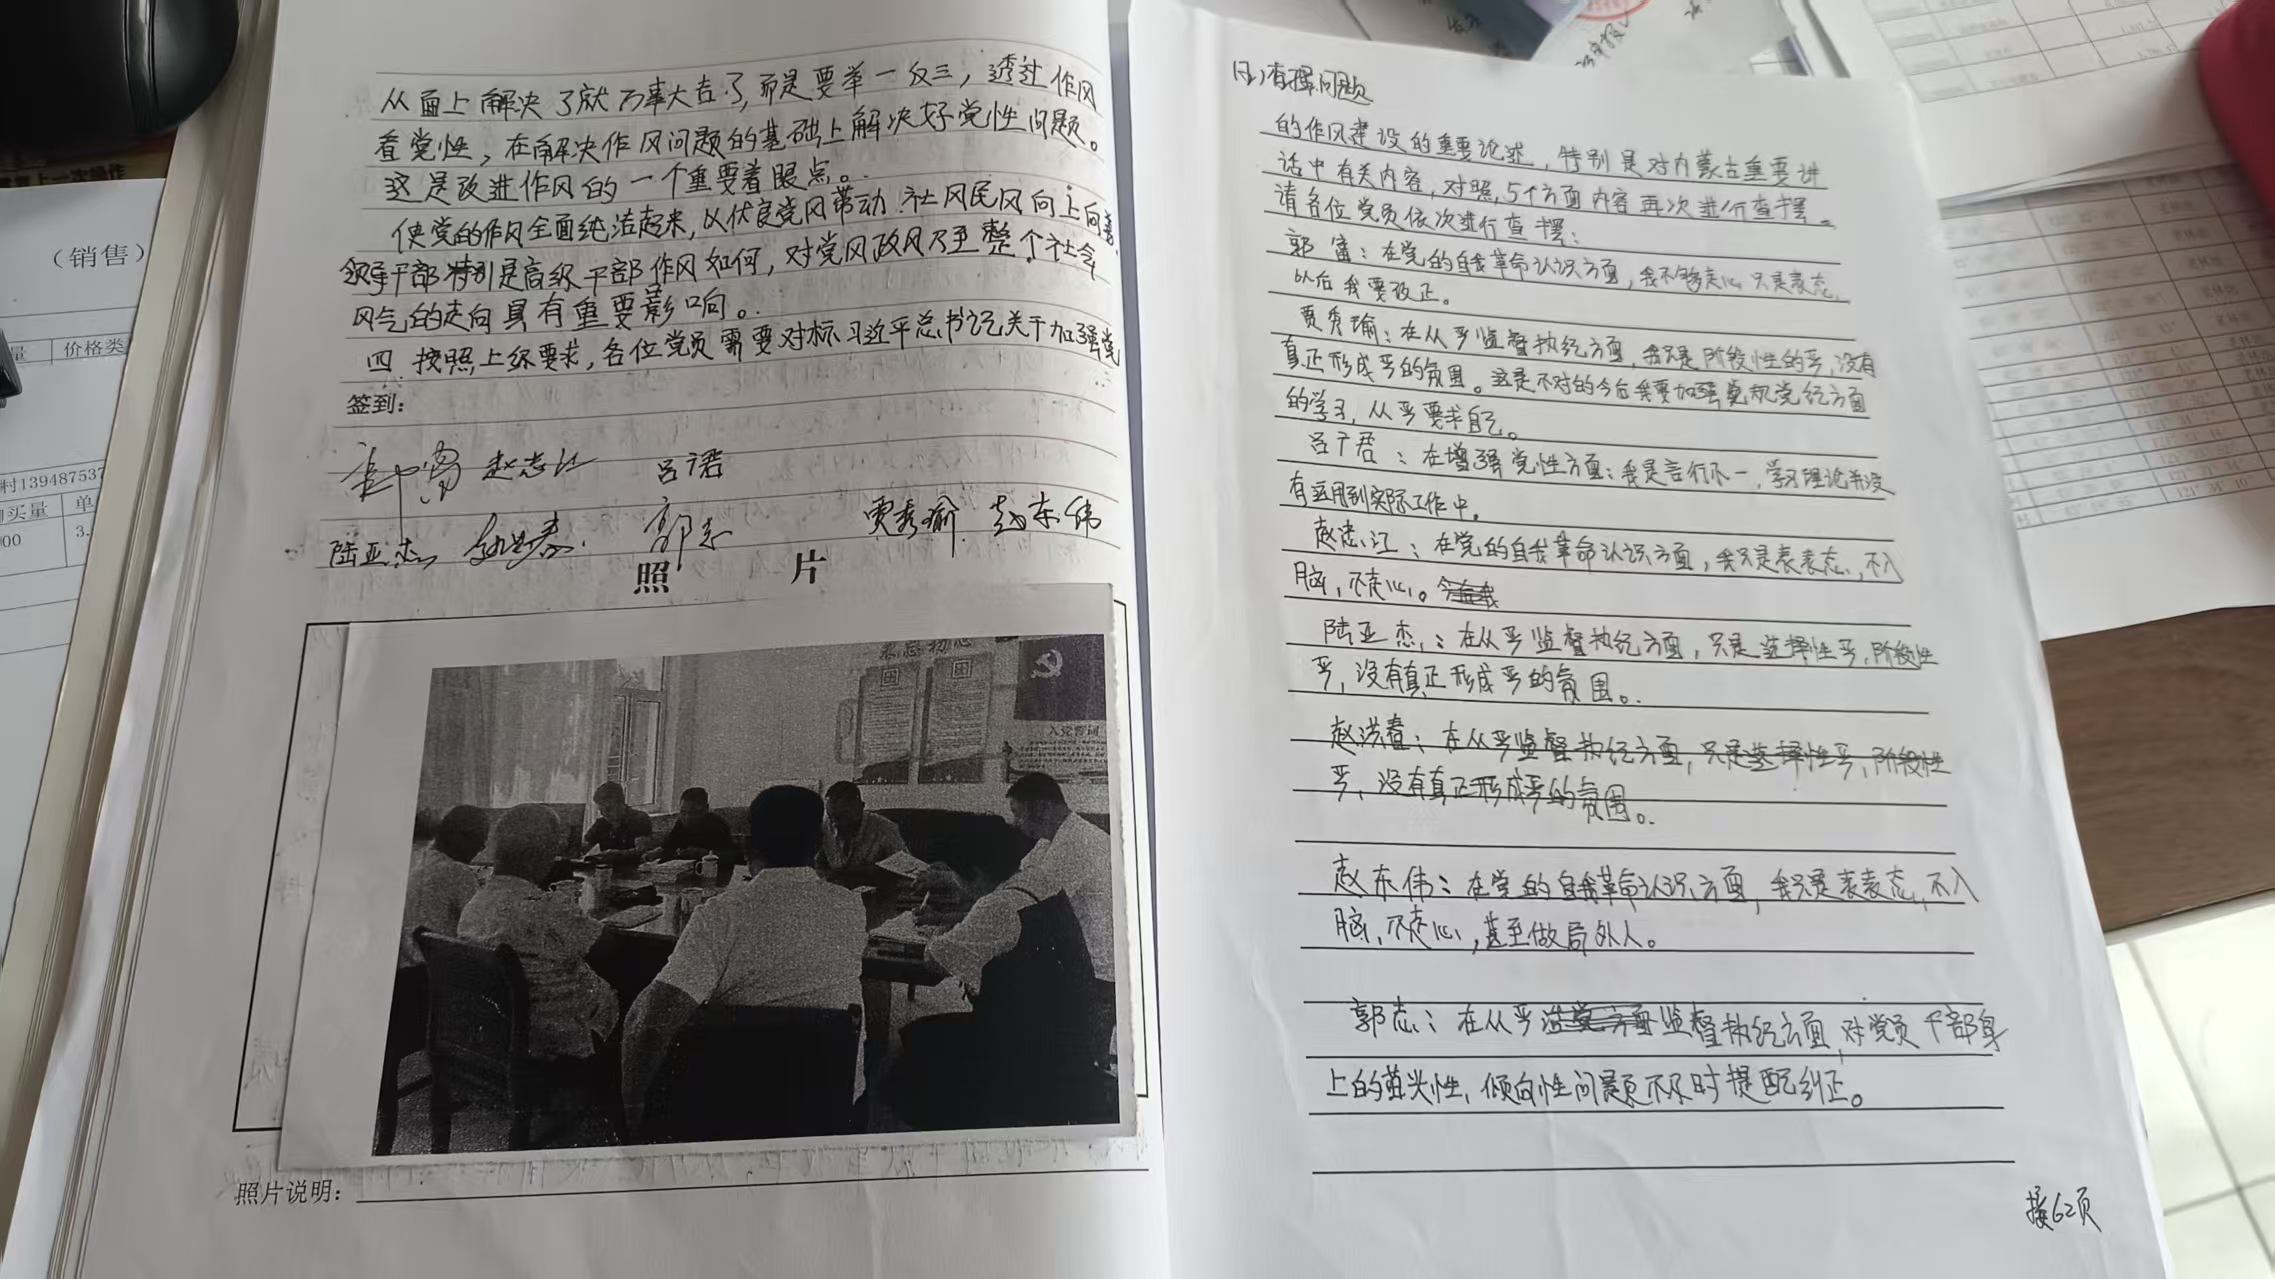 从面上解决了就万事大吉了,而是要举一反三,透过作风
看党性,在解决作风问题的基础上解决好党性问题。
这是改进作风的一个重要着眼点。
使党的作风全面纯洁起来,以优良党风带动社风民风向上向善
领导干部特别是高级干部作风如何,对党风政风乃至整个社会
风气的走向具有重要影响。
四 按照上级要求,各位党员需要对标习近平总书记关于加强党
签到:
赵志江 吕君
陆亚杰 郭志 贾秀瑜 赵东伟
照 片
入党誓词
照片说明:
查摆问题
的作风建设的重要论述,特别是对内蒙古重要讲
话中有关内容,对照,5个方面内容再次进行查摆。
请各位党员依次进行查摆:
郭富:在党的自我革命认识方面,我不够走心只是表态,
以后我要改正。
贾秀瑜:在从严监督执纪方面,我只是阶段性的严,没有
真正形成严的氛围。这是不对的今后我要加强党规党纪方面
的学习,从严要求自己。
吕广君:在增强党性方面:我是言行不一,学习理论并没
有运用到实际工作中。
赵志江:在党的自我革命认识方面,我只是表表态,不入
脑,不走心。
陆亚杰:在从严监督执纪方面,只是选择性严,阶段性
严,没有真正形成严的氛围。
赵洪春:在从严监督执纪方面,只是选择性严,阶段性
严,没有真正形成严的氛围。
赵东伟:在党的自我革命认识方面,我只是表表态,不入
脑,不走心,甚至做局外人。
郭志:在从严治党方面监督执纪方面,对党员干部身
上的苗头性,倾向性问题不及时提醒纠正。
接62页
(销售)
价格类
村139487537
购买量 单
00 3.